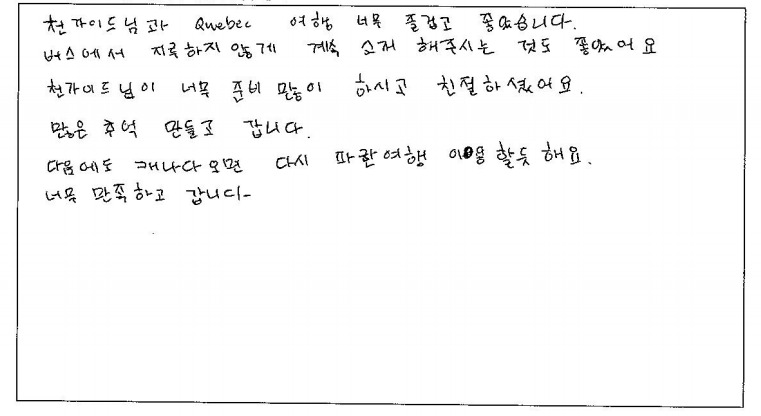 천가이드님과 Quebec 여행 너무 즐겁고 좋았습니다.
버스에서 지루하지 않게 계속 소개 해주시는 것도 좋았어요
천가이드님이 너무 준비 많이 하시고 친절하셨어요.
많은 추억 만들고 갑니다.
다음에도 캐나다 오면 다시 파란여행 이용 할듯 해요.
너무 만족하고 갑니다-